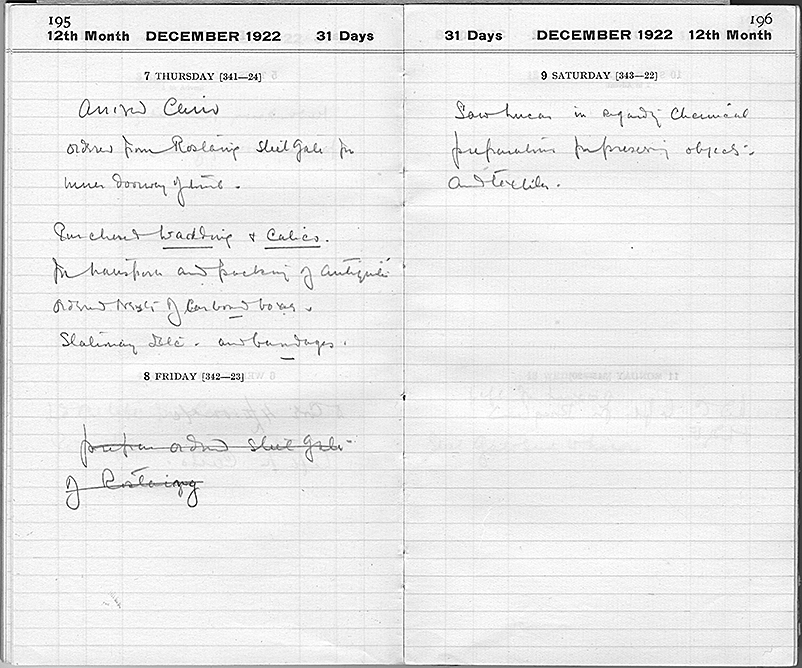 195
12th Month DECEMBER 1922 31 Days
7 THURSDAY [341—24]
Arrived Cairo
ordered from Rostaing steel gate for
inner doorway of tomb.
Purchased Wadding & Calico.
for transport and packing of antiquities
ordered nests of Cardboard boxes.
Stationary etc. and bandages.
8 FRIDAY [342—23]
prepare ordered steel gate
of Rostaing
196
31 Days DECEMBER 1922 12th Month
9 SATURDAY [343—22]
Saw Lucas in regarding Chemical
preparations for preserving objects.
and textiles.